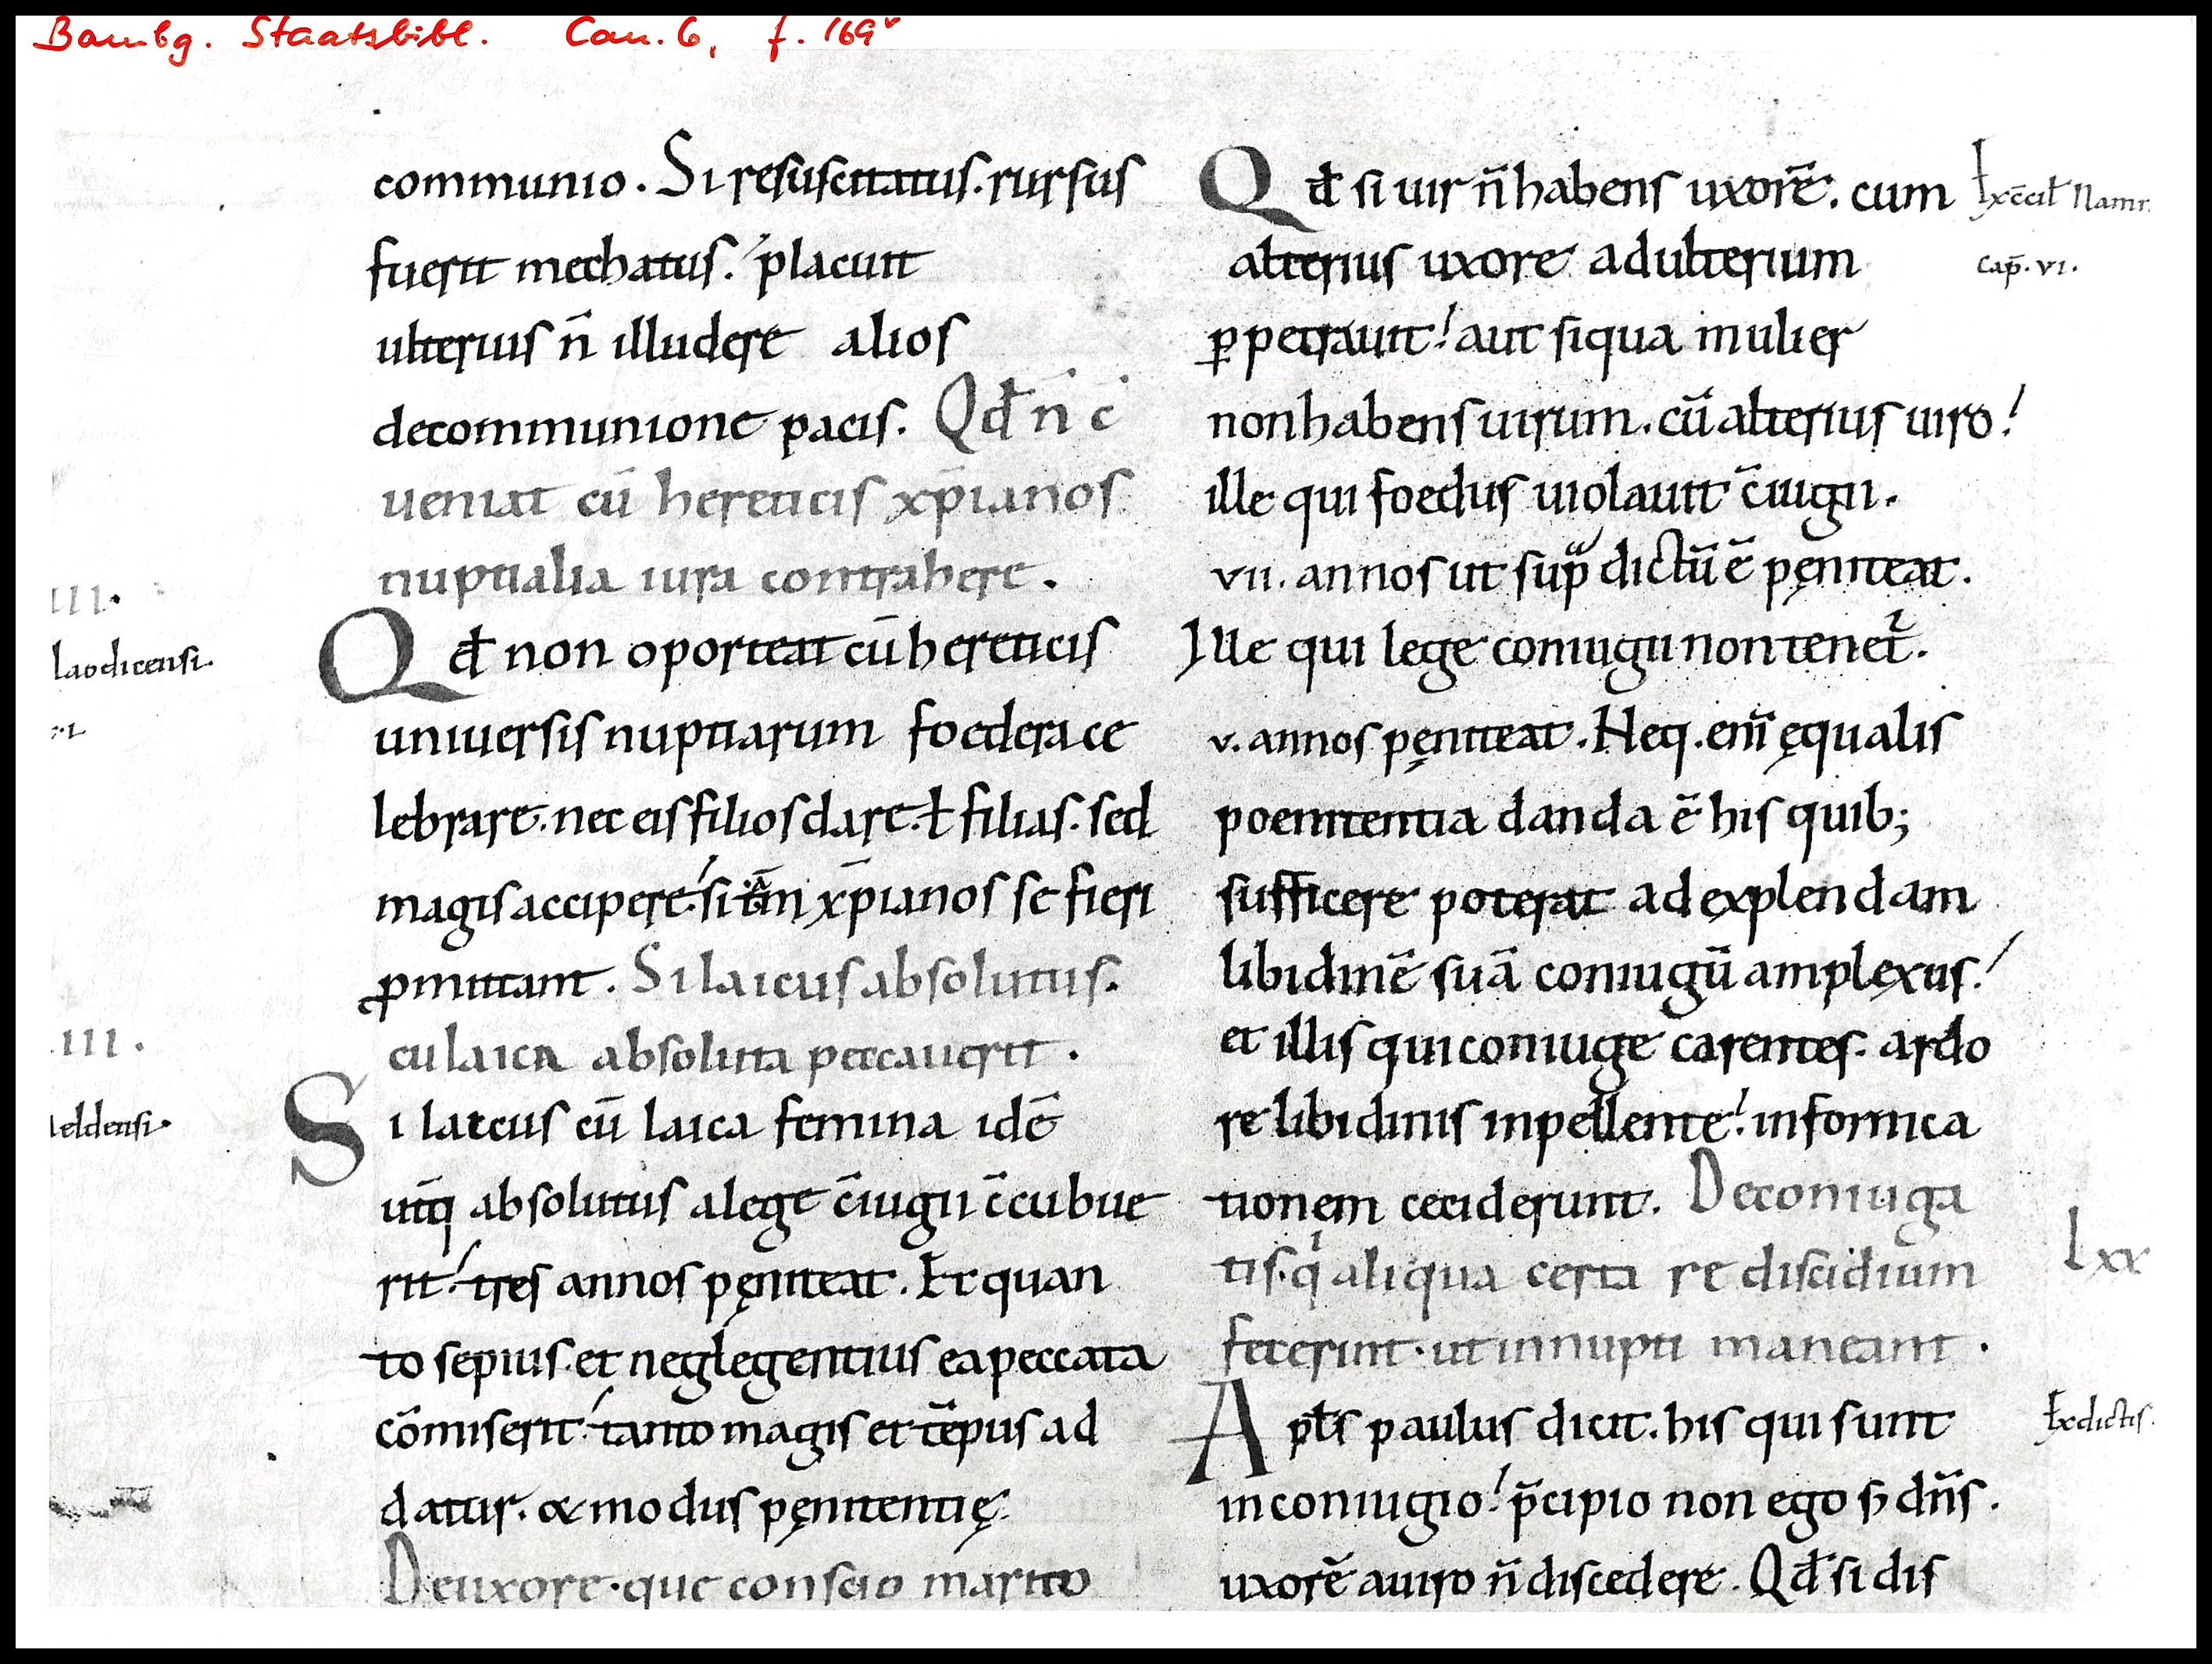 Bambg. Staatsbibl. Can. 6, f. 169v
communio. Si resuscitatus. rursus
fuerit mechatus. placuit
ulterius n̄ illudere alios
decommunione pacis. Qđ n̄ c̄
ueniat cū hereticis xp̄ianos
nuptialia iura contrahere.
III.
laodicensi.
Qđ non oporteat cū hereticis
uniuersis nuptiarum foedera ce
lebrare. nec eis filios dare. ł filias. sed
magis accipere. si tam̄ xp̄ianos se fieri
ꝓmittant. Si laicus absolutus.
cu laica absoluta peccauerit.
III.
eldensi.
Si laicus cū laica femina idē
utq̄ absolutus a lege c̄iugii c̄cubue
rit. tres annos pęniteat. Et quan
to sepius. et neglegentius ea peccata
cōmiserit. tanto magis et tēpus ad
datur. & modus pęnitentię.
De uxore. que conscio marito
Qđ si uir n̄ habens uxorē. cum
alterius uxore adulterium
ꝑpetrauit. aut siqua mulier
non habens uirum. cū alterius uiro.
ille qui foedus uiolauit c̄iugii.
VII. annos ut sup̄ dictū ē pęniteat.
Ille qui lege coniugii non tenet᷑.
V. annos pęniteat. Neq. enī ęqualis
poenitentia danda ē his quib;
sufficere poterat ad explendam
libidinē suā coniugū amplexus.
et illis qui coniuge carentes. ardo
re libidinis inpellente. in fornica
tionem ceciderunt. De coniuga
tis. qi aliqua certa re discidium
fecerint. ut innupti maneant.
Apłs paulus dicit. his qui sunt
in coniugio. p̄cipio non ego s; dn̄s.
uxorē a uiro n̄ discedere. Qđ si dis
Ex c̄cil Namt.
cap̄. VI.
Lxx
Ex dictis.